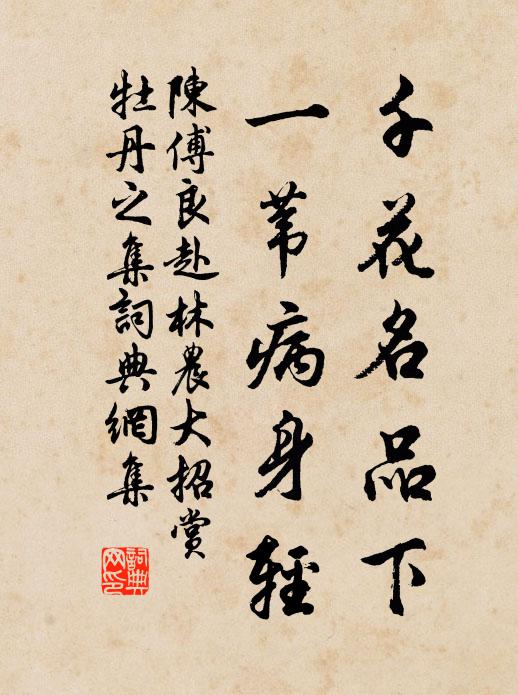 千花名品下
一苇病身輕
陳傅良赴林農大招賞
牡丹之集詞典網集
詞典网印